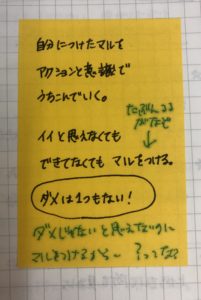 自分につけたマルを
アクションと意識で
うちこんでいく。
たぶん
↓
イイと思えなくても
できてなくても マルをつける。
ダメは1つもない!
ダメじゃないと思えないのに
マルをつけるから〜 ?ってなる